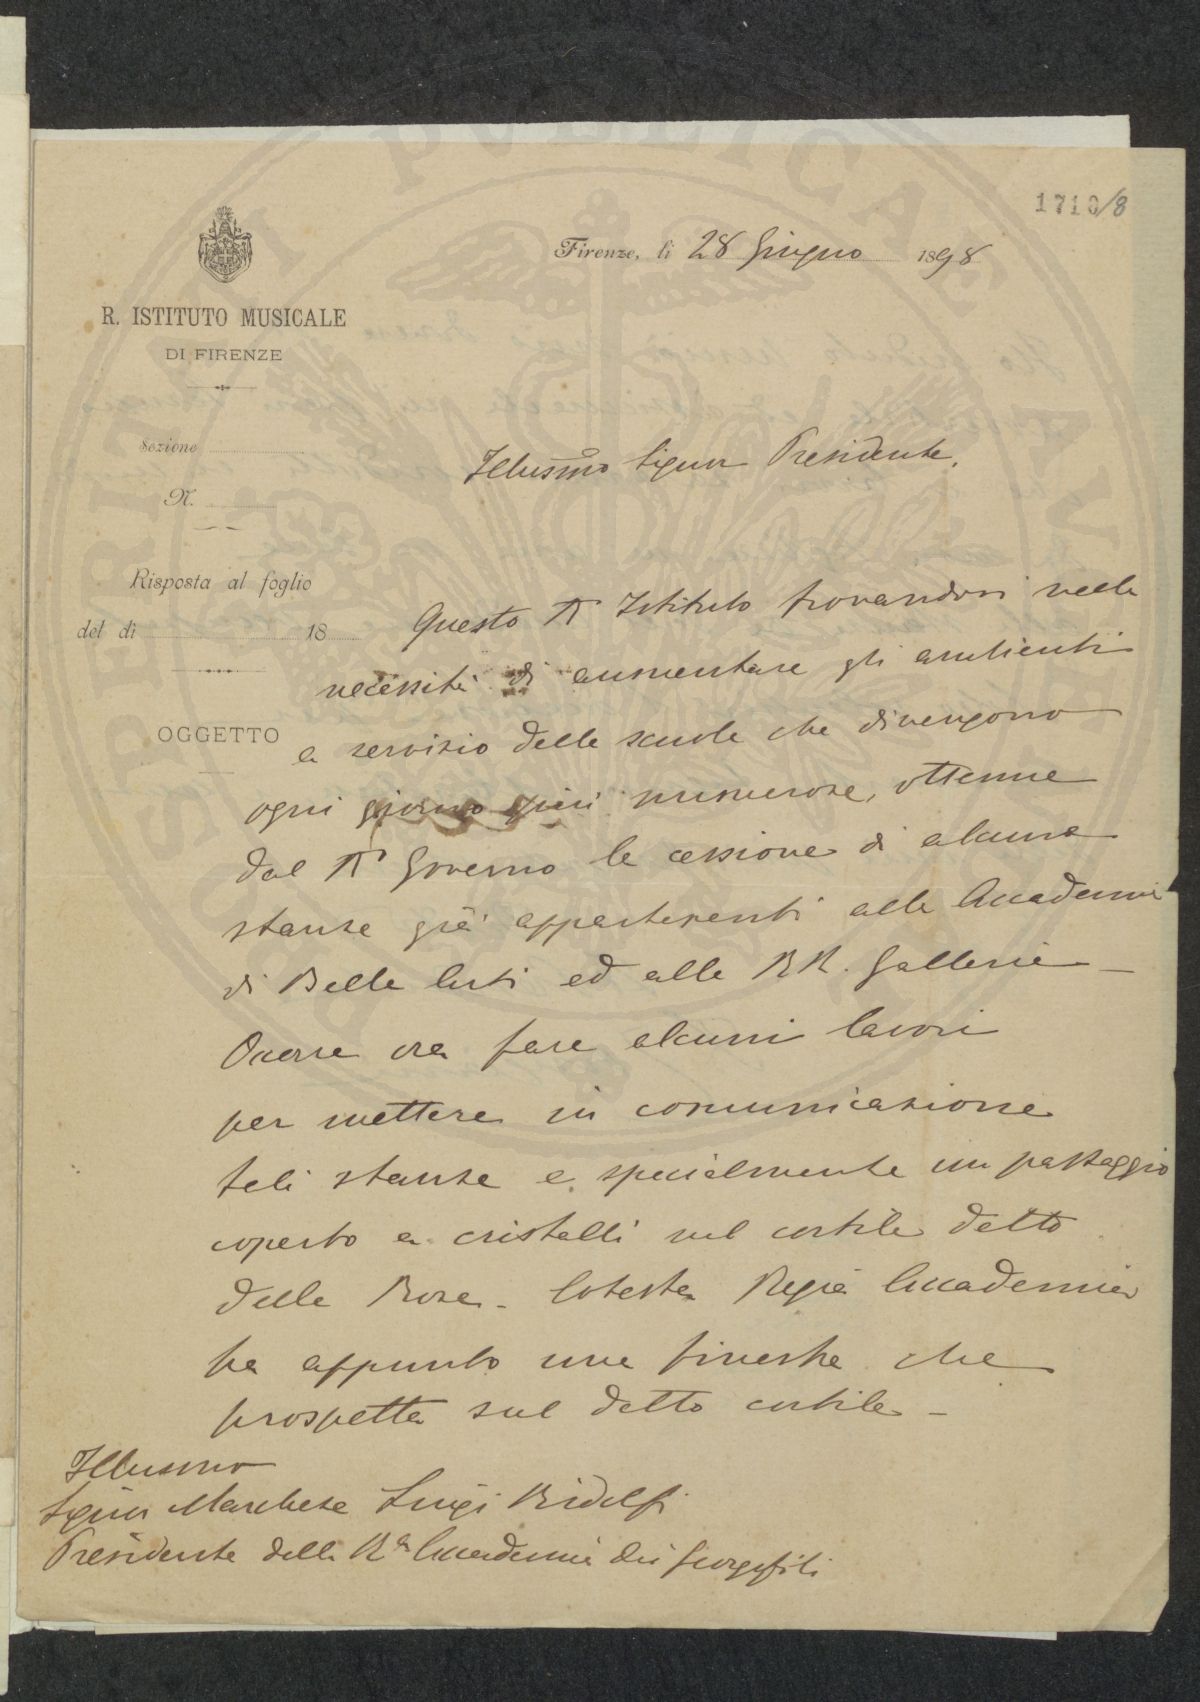 1710/8
Firenze, li 28 Giugno 1898
R. ISTITUTO MUSICALE
DI FIRENZE
Sezione
N.
Illusmo Signor Presidente,
Risposta al foglio
del di 18
Questo R Istituto trovandosi nella
necessità di aumentare gli ambienti
OGGETTO
a servizio delle scuole che divengono
ogni giorno più numerose, ottenne
dal R Governo la cessione di alcune
stanze già appartenenti alla Accademia
di Belle Arti ed alle RR. Gallerie —
Occorre ora fare alcuni lavori
per mettere in comunicazione
tali stanze e specialmente un passaggio
coperto a cristalli nel cortile detto
delle Rose. Cotesta Regia Accademia
ha appunto una finestra che
prospetta sul detto cortile —
Illusmo
Signor Marchese Luigi Ridolfi
Presidente della Ra Accademia dei Georgofili